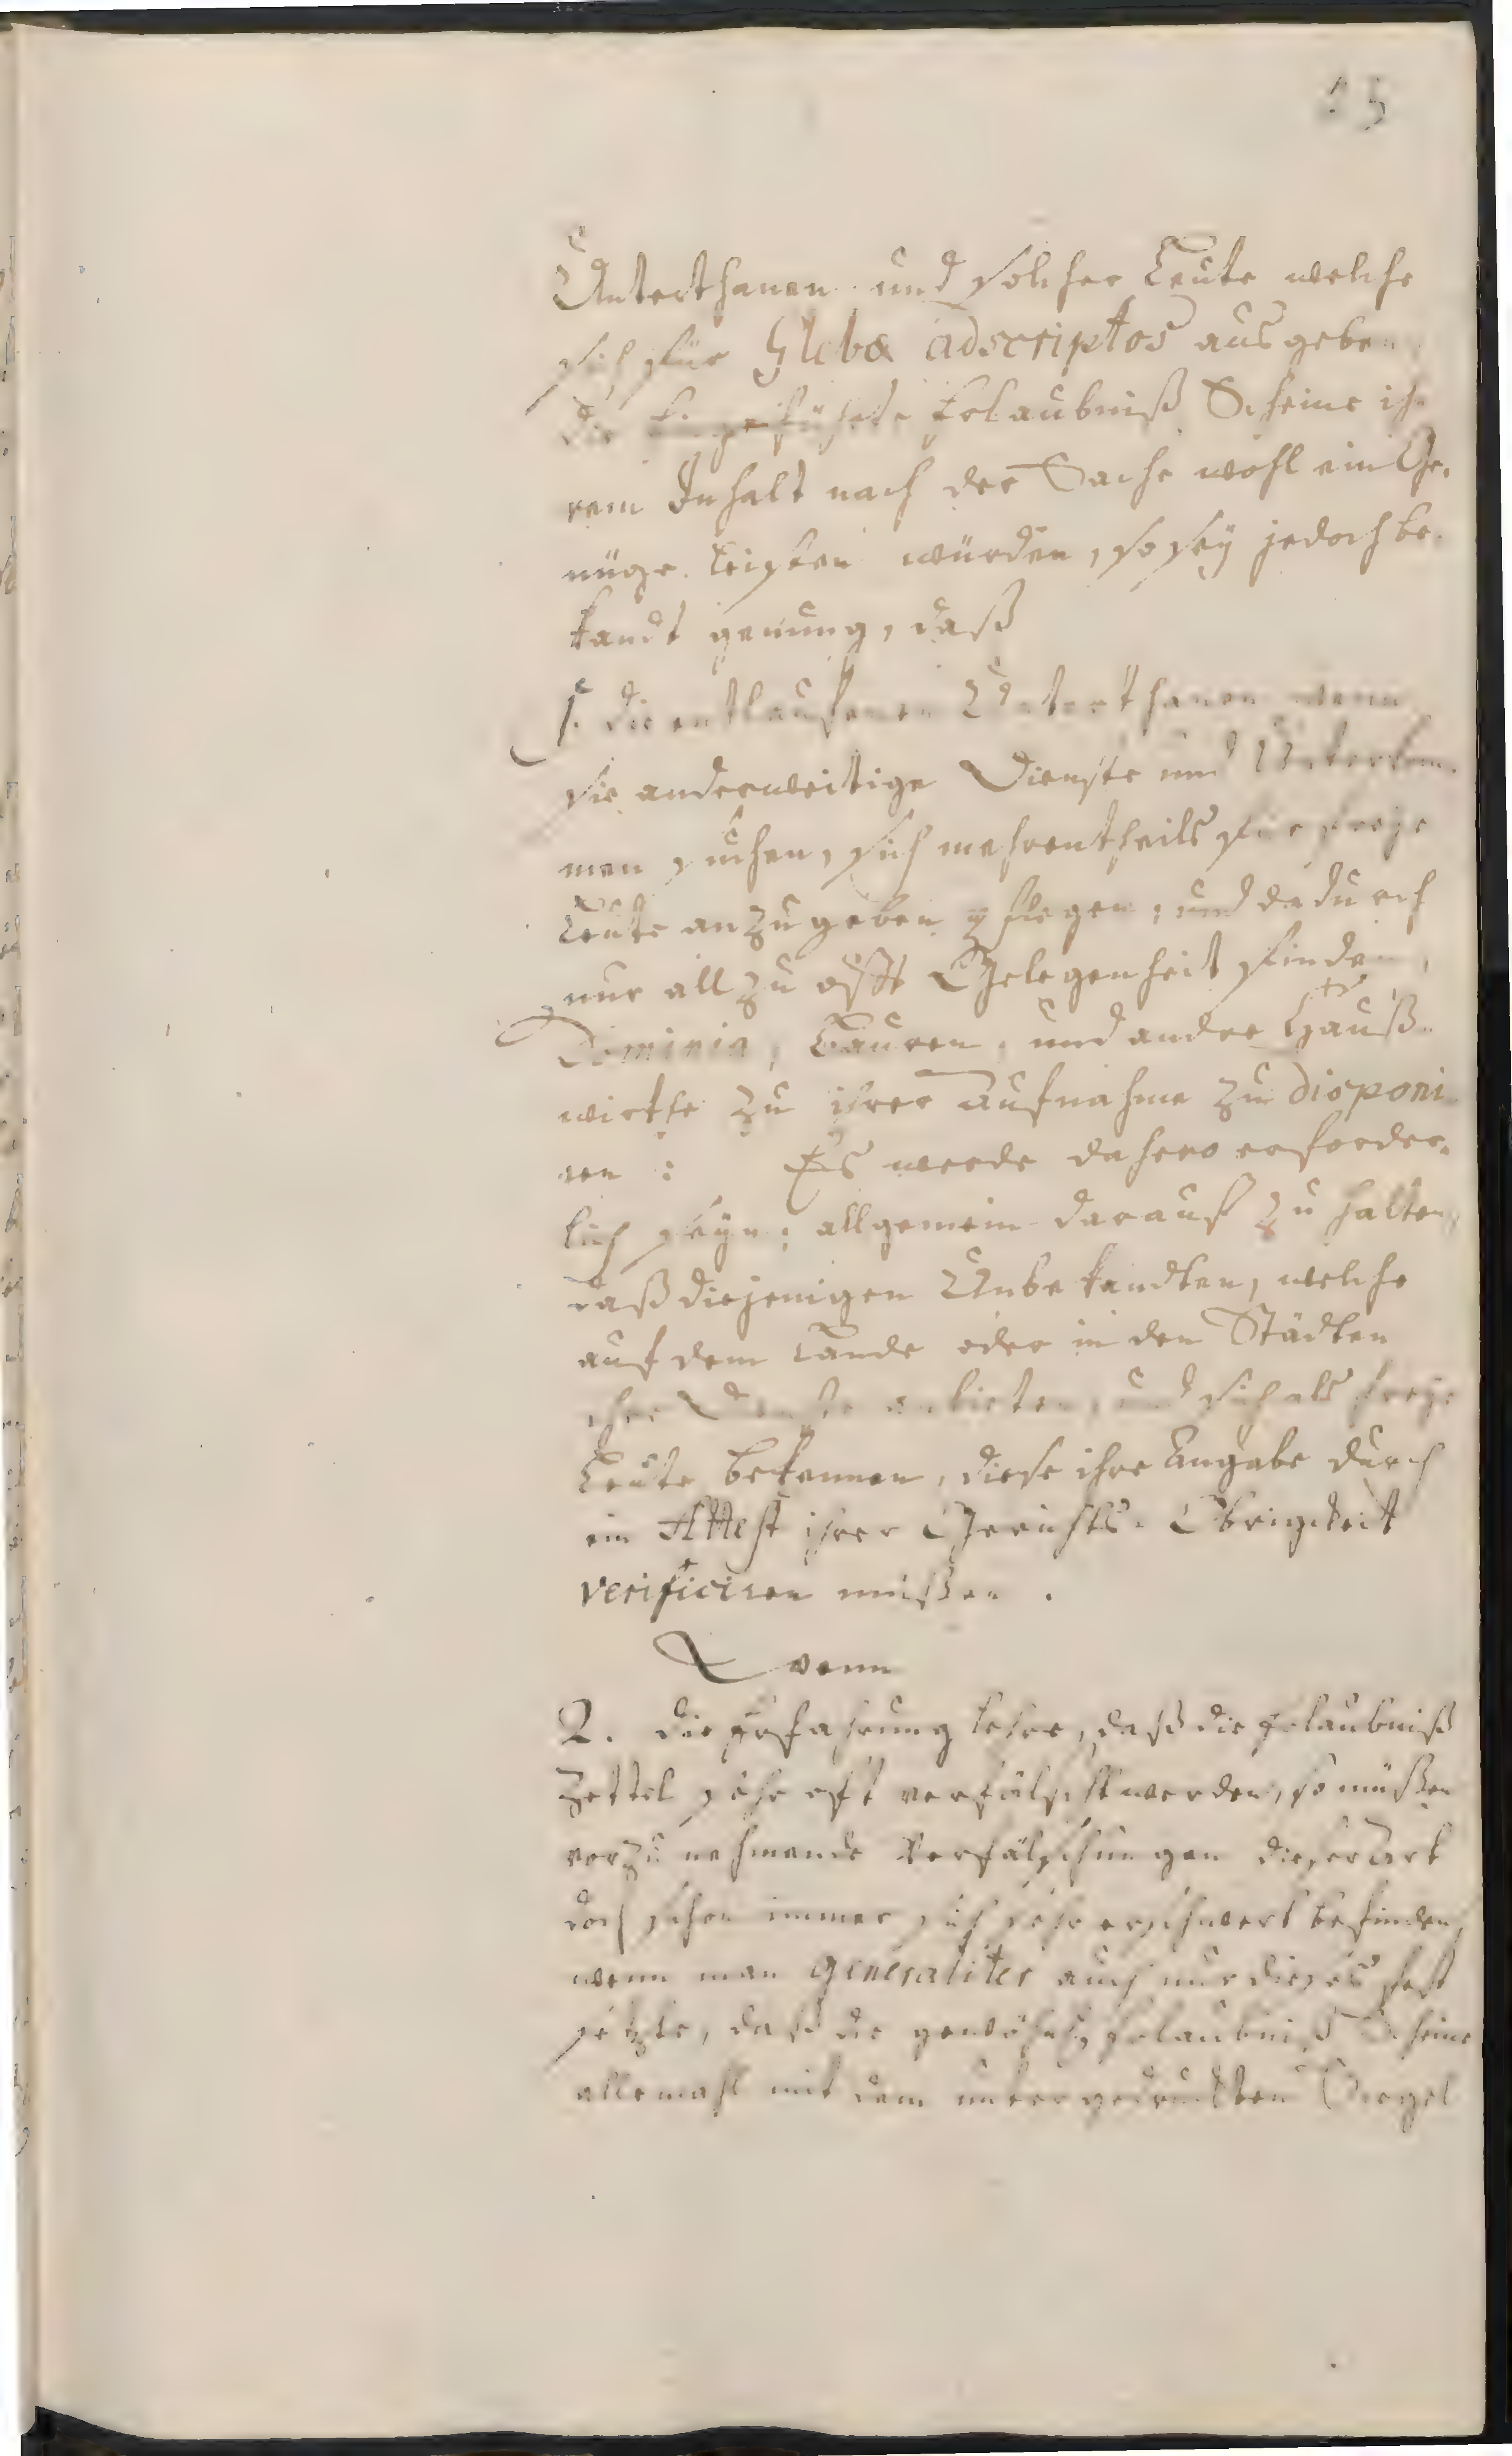 15
Unterthanen und solcher Leute welche
sich für Glebæ adscriptos ausgeben
die eingeführte Erlaubniß Scheine ih-
rem Inhalt nach der Sache wohl ein Ge-
nüge leisten würden, so sey jedoch be-
kandt genung, daß
1. die entlaufenen Unterthanen wenn
sie anderweitige Dienste und Unterkom-
men suchen, sich mehrentheils für freye
Leute anzugeben pflegen, und dadurch
nur allzu offt Gelegenheit finden,
Dominia, Bauren, und andre Hauß-
wirthe zu ihrer Aufnahme zu disponi-
ren: Es werde dahero erforder-
lich seyn, allgemein darauf zu halten,
daß diejenigen Unbekandten, welche
auf dem Lande oder in den Städten
ihre Dienste anbieten, und sich als freye
Leute bekennen, diese ihre Angabe durch
ein Attest ihrer Gerichts-Obrigkeit
verificiren müßen.
Wenn
2. die Erfahrung lehre, daß die Erlaubniß
Zettel sehr oft verfälscht werden, so müßen
vorzunehmende Verfälschungen dieser Art
doch schon immer sich sehr erschwert befinden,
wenn man generaliter auch nur dieses fest
setzte, daß die gewöhnl. Erlaubniß Scheine
allemahl mit dem untergedruckten Siegel